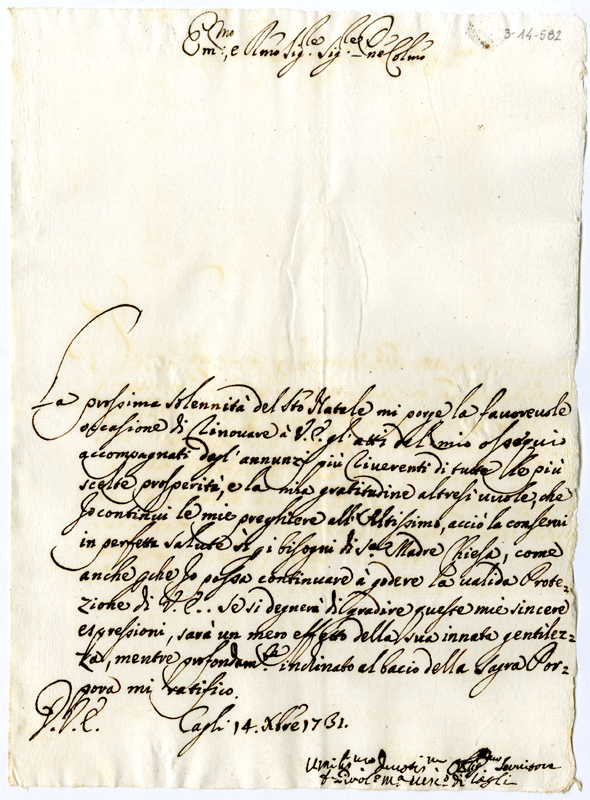 3-14-582
Em.mo, e Rmo Sig.re Sig.re Pne Colmo
La prossima solennità del Sto Natale mi porge la favorevole
occasione di rinovare à V.E. gl'atti del mio ossequio
accompagnati dagl'annunzi più riverenti di tutte le più
scelte prosperità, e la mia gratitudine altresi vuole, che
Io continui le mie preghiere all'Altissimo, acciò la conservi
in perfetta salute p gi bisogni di Sta Madre Chiesa, come
anche pche Io possa continuare à godere la valida Prote-
zione di V.E.. Se si degnerà di gradire queste mie sincere
espressioni, sarà un mero effetto della sua innata gentilez-
za, mentre profondam.te inclinato al bacio della Sagra Por-
pora mi ratifico.
D.V.E. Cagli 14. Xbre 1731.
Umilis.mo Devotis.mo Oblig.mo Servitore
M.a Vesc.o di Cagli